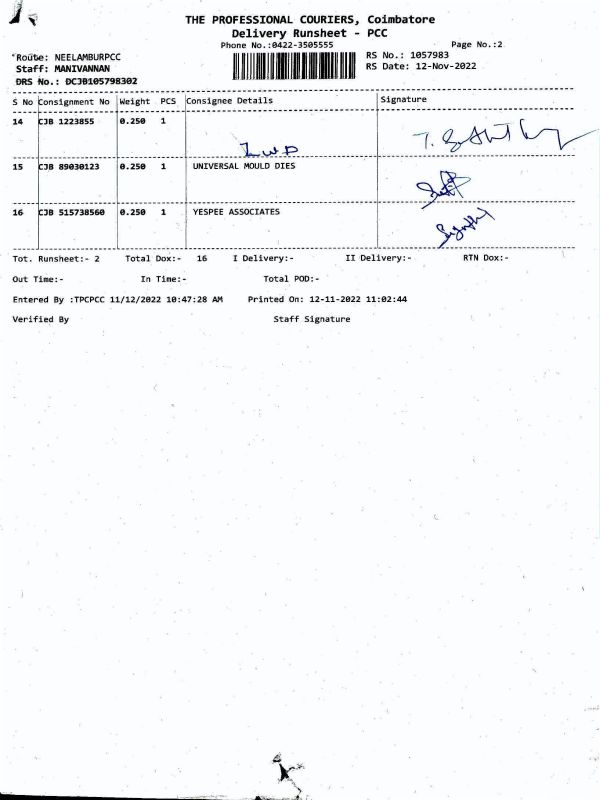 THE PROFESSIONAL COURIERS, Coimbatore
Delivery Runsheet - PCC
Phone No.:0422-3505555 Page No.:2
Route: NEELAMBURPCC RS No.: 1057983
Staff: MANIVANNAN RS Date: 12-Nov-2022
DRS No.: DCJB105798302
S No Consignment No Weight PCS Consignee Details Signature
14 CJB 1223855 0.250 1
15 CJB 89030123 0.250 1 UNIVERSAL MOULD DIES
16 CJB 515738560 0.250 1 YESPEE ASSOCIATES
Tot. Runsheet:- 2 Total Dox:- 16 I Delivery:- II Delivery:- RTN Dox:-
Out Time:- In Time:- Total POD:-
Entered By :TPCPCC 11/12/2022 10:47:28 AM Printed On: 12-11-2022 11:02:44
Verified By Staff Signature